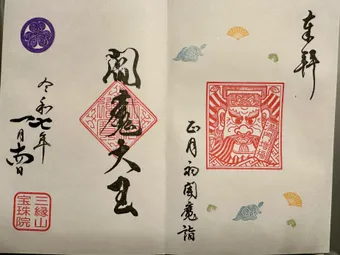 奉拝
正月初閻魔詣
閻魔大王
令和七年
一月十四日
三縁山
宝珠院